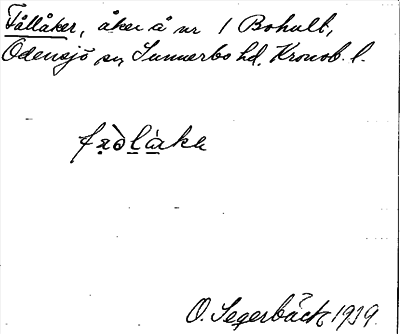 Fållåker, åker å nr 1 Bohult,
Odensjö sn, Sunnerbo hd, Kronob. l.
O. Segerbäck 1939